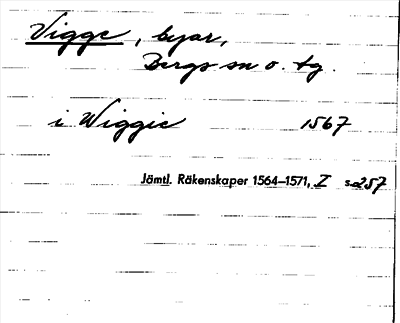 Vigge, byar,
Bergs sn o. tg.
i Wiggie 1567
Jämtl. Räkenskaper 1564–1571, I s. 257